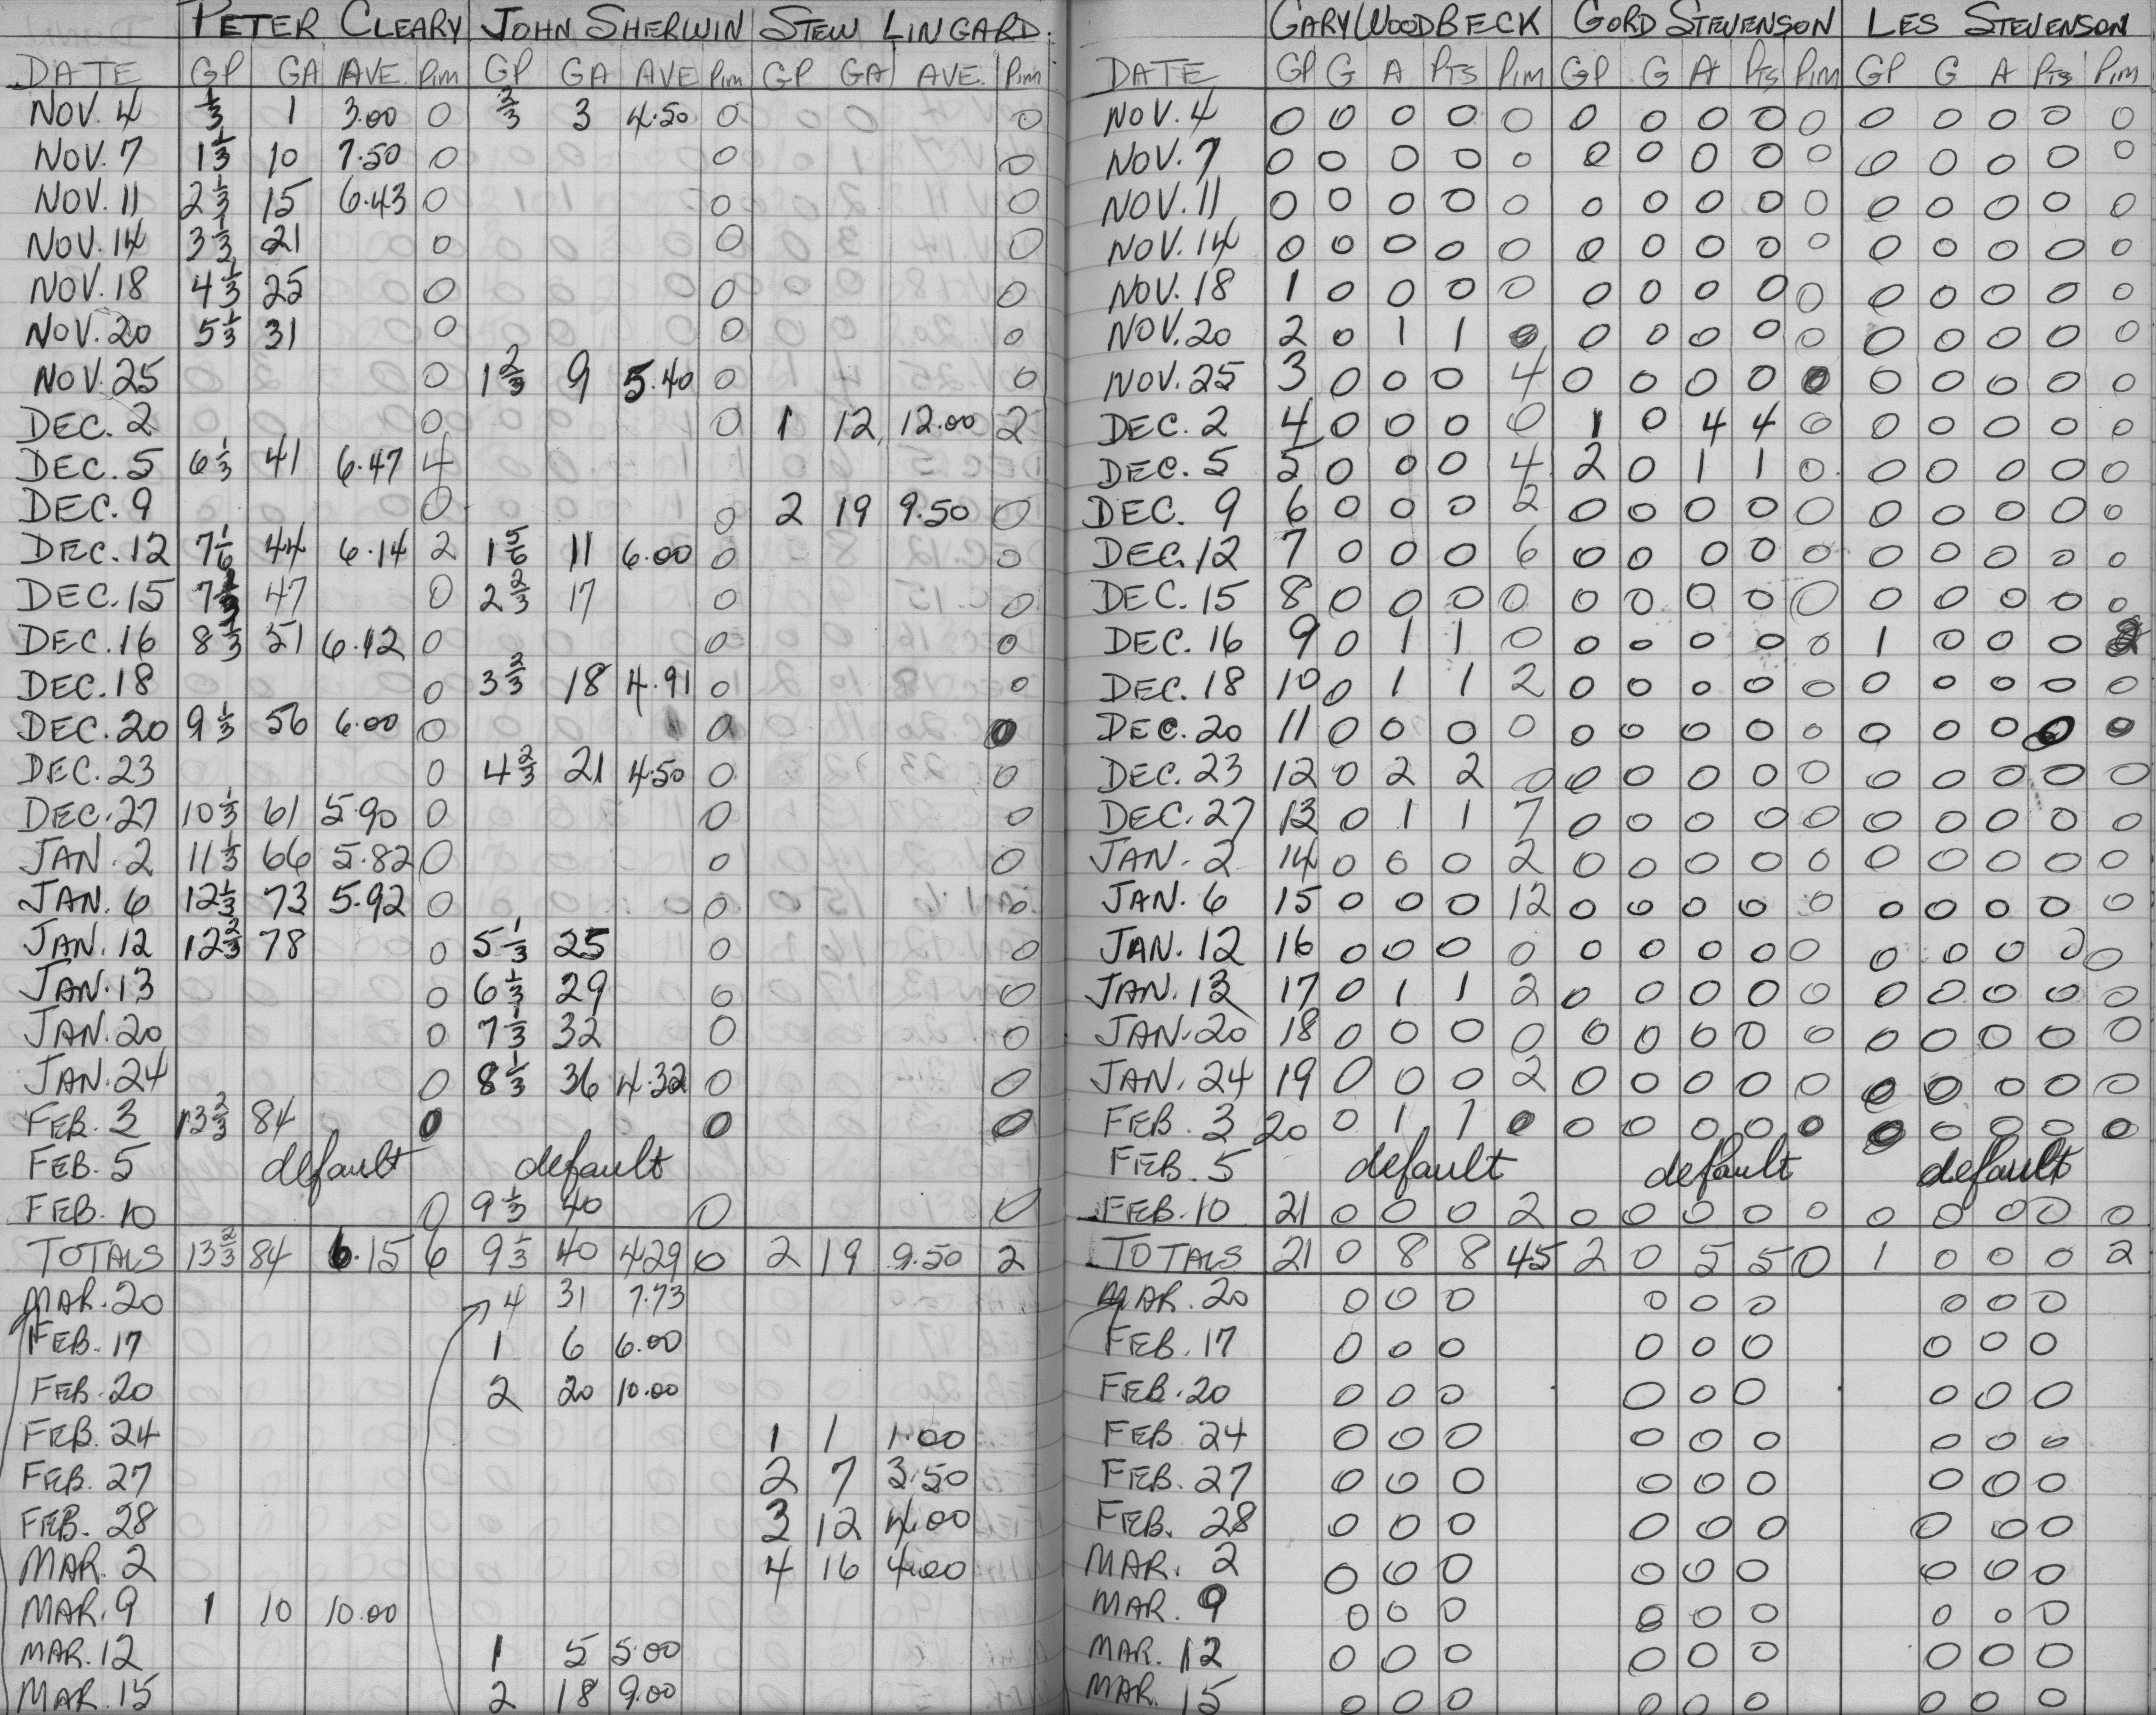 PETER CLEARY JOHN SHERWIN STEW LINGARD.
DATE GP GA AVE. Pim GP GA AVE Pim GP GA AVE. Pim
NOV. 4 1/3 1 3.00 0 2/3 3 4.50 0 0
NOV. 7 1 1/3 10 7.50 0 0 0
NOV. 11 2 1/3 15 6.43 0 0 0
NOV. 14 3 1/3 21 0 0 0
NOV. 18 4 1/3 25 0 0 0
NOV. 20 5 1/3 31 0 0 0
NOV. 25 0 1 2/3 9 5.40 0 0
DEC. 2 0 0 1 12 12.00 2
DEC. 5 6 1/3 41 6.47 4
DEC. 9 0 0 2 19 9.50 0
DEC. 12 7 1/6 44 6.14 2 1 5/6 11 6.00 0 0
DEC. 15 7 47 0 2 2/3 17 0 0
DEC. 16 8 1/3 51 6.12 0 0 0
DEC. 18 0 3 2/3 18 4.91 0 0
DEC. 20 9 1/3 56 6.00 0 0 0
DEC. 23 0 4 2/3 21 4.50 0 0
DEC. 27 10 1/3 61 5.90 0 0 0
JAN. 2 11 1/3 66 5.82 0 0 0
JAN. 6 12 1/3 73 5.92 0 0 0
JAN. 12 12 2/3 78 0 5 1/3 25 0 0
JAN. 13 0 6 1/3 29 0 0
JAN. 20 0 7 1/3 32 0 0
JAN. 24 0 8 1/3 36 4.32 0 0
FEB. 3 13 2/3 84 0 0 0
FEB. 5 default default
FEB. 10 0 9 1/3 40 0 0
TOTALS 13 2/3 84 6.15 6 9 1/3 40 4.29 0 2 19 9.50 2
MAR. 20 4 31 7.73
FEB. 17 1 6 6.00
FEB. 20 2 20 10.00
FEB. 24 1 1 1.00
FEB. 27 2 7 3.50
FEB. 28 3 12 4.00
MAR. 2 4 16 4.00
MAR. 9 1 10 10.00
MAR. 12 1 5 5.00
MAR. 15 2 18 9.00
GARY WOODBECK GORD STEVENSON LES STEVENSON
DATE GP G A PTS Pim GP G A PTS Pim GP G A PTS Pim
NOV. 4 0 0 0 0 0 0 0 0 0 0 0 0 0 0 0
NOV. 7 0 0 0 0 0 0 0 0 0 0 0 0 0 0 0
NOV. 11 0 0 0 0 0 0 0 0 0 0 0 0 0 0 0
NOV. 14 0 0 0 0 0 0 0 0 0 0 0 0 0 0 0
NOV. 18 1 0 0 0 0 0 0 0 0 0 0 0 0 0 0
NOV. 20 2 0 1 1 0 0 0 0 0 0 0 0 0 0 0
NOV. 25 3 0 0 0 4 0 0 0 0 0 0 0 0 0 0
DEC. 2 4 0 0 0 0 1 0 4 4 0 0 0 0 0 0
DEC. 5 5 0 0 0 4 2 0 1 1 0 0 0 0 0 0
DEC. 9 6 0 0 0 2 0 0 0 0 0 0 0 0 0 0
DEC. 12 7 0 0 0 6 0 0 0 0 0 0 0 0 0 0
DEC. 15 8 0 0 0 0 0 0 0 0 0 0 0 0 0 0
DEC. 16 9 0 1 1 0 0 0 0 0 0 1 0 0 0 2
DEC. 18 10 0 1 1 2 0 0 0 0 0 0 0 0 0 0
DEC. 20 11 0 0 0 0 0 0 0 0 0 0 0 0 0 0
DEC. 23 12 0 2 2 0 0 0 0 0 0 0 0 0 0 0
DEC. 27 13 0 1 1 7 0 0 0 0 0 0 0 0 0 0
JAN. 2 14 0 0 0 2 0 0 0 0 0 0 0 0 0 0
JAN. 6 15 0 0 0 12 0 0 0 0 0 0 0 0 0 0
JAN. 12 16 0 0 0 0 0 0 0 0 0 0 0 0 0 0
JAN. 13 17 0 1 1 2 0 0 0 0 0 0 0 0 0 0
JAN. 20 18 0 0 0 0 0 0 0 0 0 0 0 0 0 0
JAN. 24 19 0 0 0 2 0 0 0 0 0 0 0 0 0 0
FEB. 3 20 0 1 1 0 0 0 0 0 0 0 0 0 0 0
FEB. 5 default default default
FEB. 10 21 0 0 0 2 0 0 0 0 0 0 0 0 0 0
TOTALS 21 0 8 8 45 2 0 5 5 0 1 0 0 0 2
MAR. 20 0 0 0 0 0 0 0 0 0
FEB. 17 0 0 0 0 0 0 0 0 0
FEB. 20 0 0 0 0 0 0 0 0 0
FEB 24 0 0 0 0 0 0 0 0 0
FEB. 27 0 0 0 0 0 0 0 0 0
FEB. 28 0 0 0 0 0 0 0 0 0
MAR. 2 0 0 0 0 0 0 0 0 0
MAR. 9 0 0 0 0 0 0 0 0 0
MAR. 12 0 0 0 0 0 0 0 0 0
MAR. 15 0 0 0 0 0 0 0 0 0